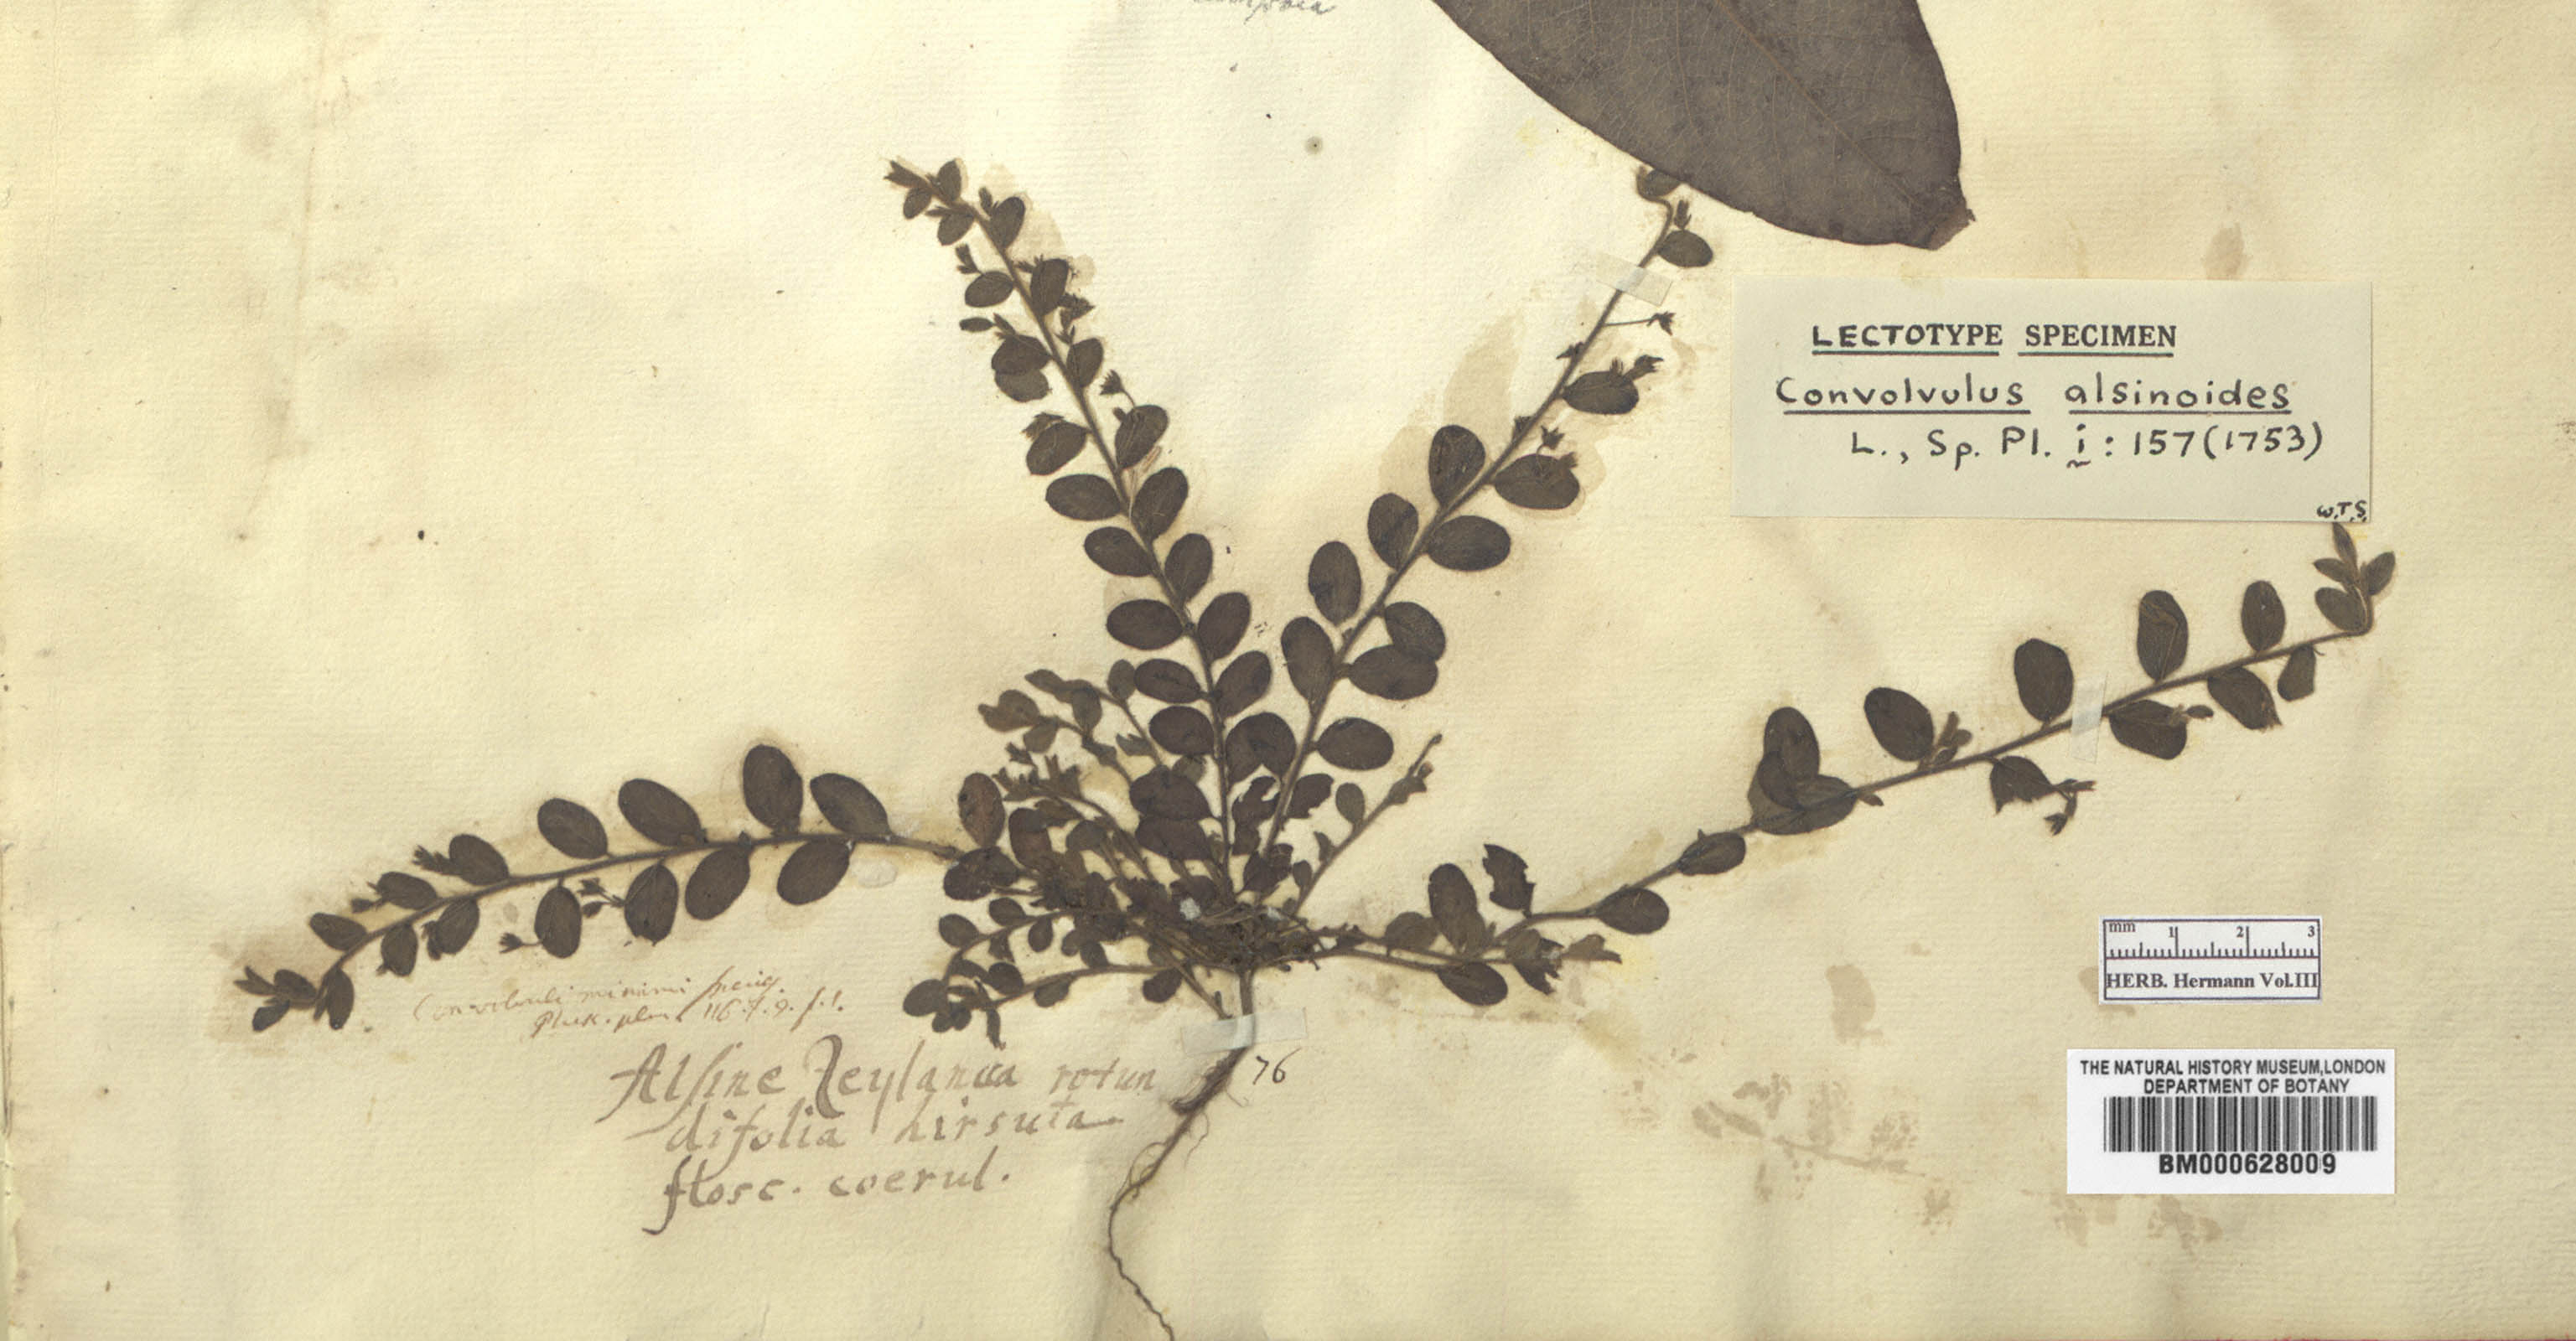 LECTOTYPE SPECIMEN
Convolvulus alsinoides
L., Sp. Pl. i : 157 (1753)
W.T.S.
mm 1 2 3
HERB. Hermann Vol.III
Convolvuli minimi species.
Pluk. 116. f. 9. f. 1.
Alsine Zeylanica rotun
difolia hirsuta
flosc. coerul.
76
THE NATURAL HISTORY MUSEUM, LONDON
DEPARTMENT OF BOTANY
BM000628009